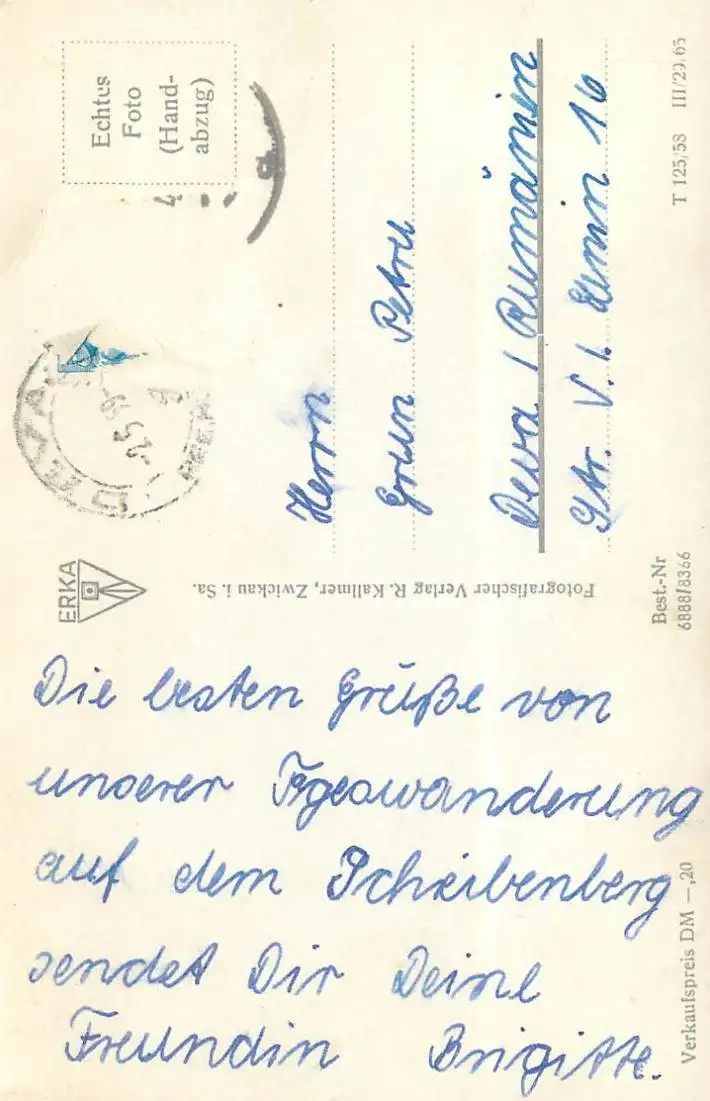 Die besten Grüße von
unserer Tgeswanderung
auf dem Scheibenberg
sendet Dir Deine
Freundin Brigitte.
Verkaufspreis DM —,20
ERKA
Fotografischer Verlag R. Kallmer, Zwickau i. Sa.
Best.-Nr
6888/8366
Echtes
Foto
(Hand-
abzug)
DEVA
-2.5 59-
Herrn
Grun Petru
Deva / Rumänien
Str. V. I. Lenin 16
T 125/58 III/29.65